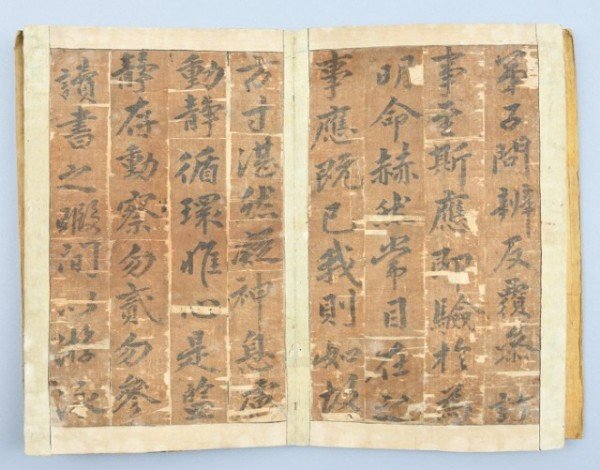 弟子問辨反覆參訂
事至斯應則驗於爲
明命赫然常目在之
事應旣已我則如故
方寸湛然凝神息慮
動靜循環惟心是監
靜存動察勿貳勿參
讀書之暇間以游泳